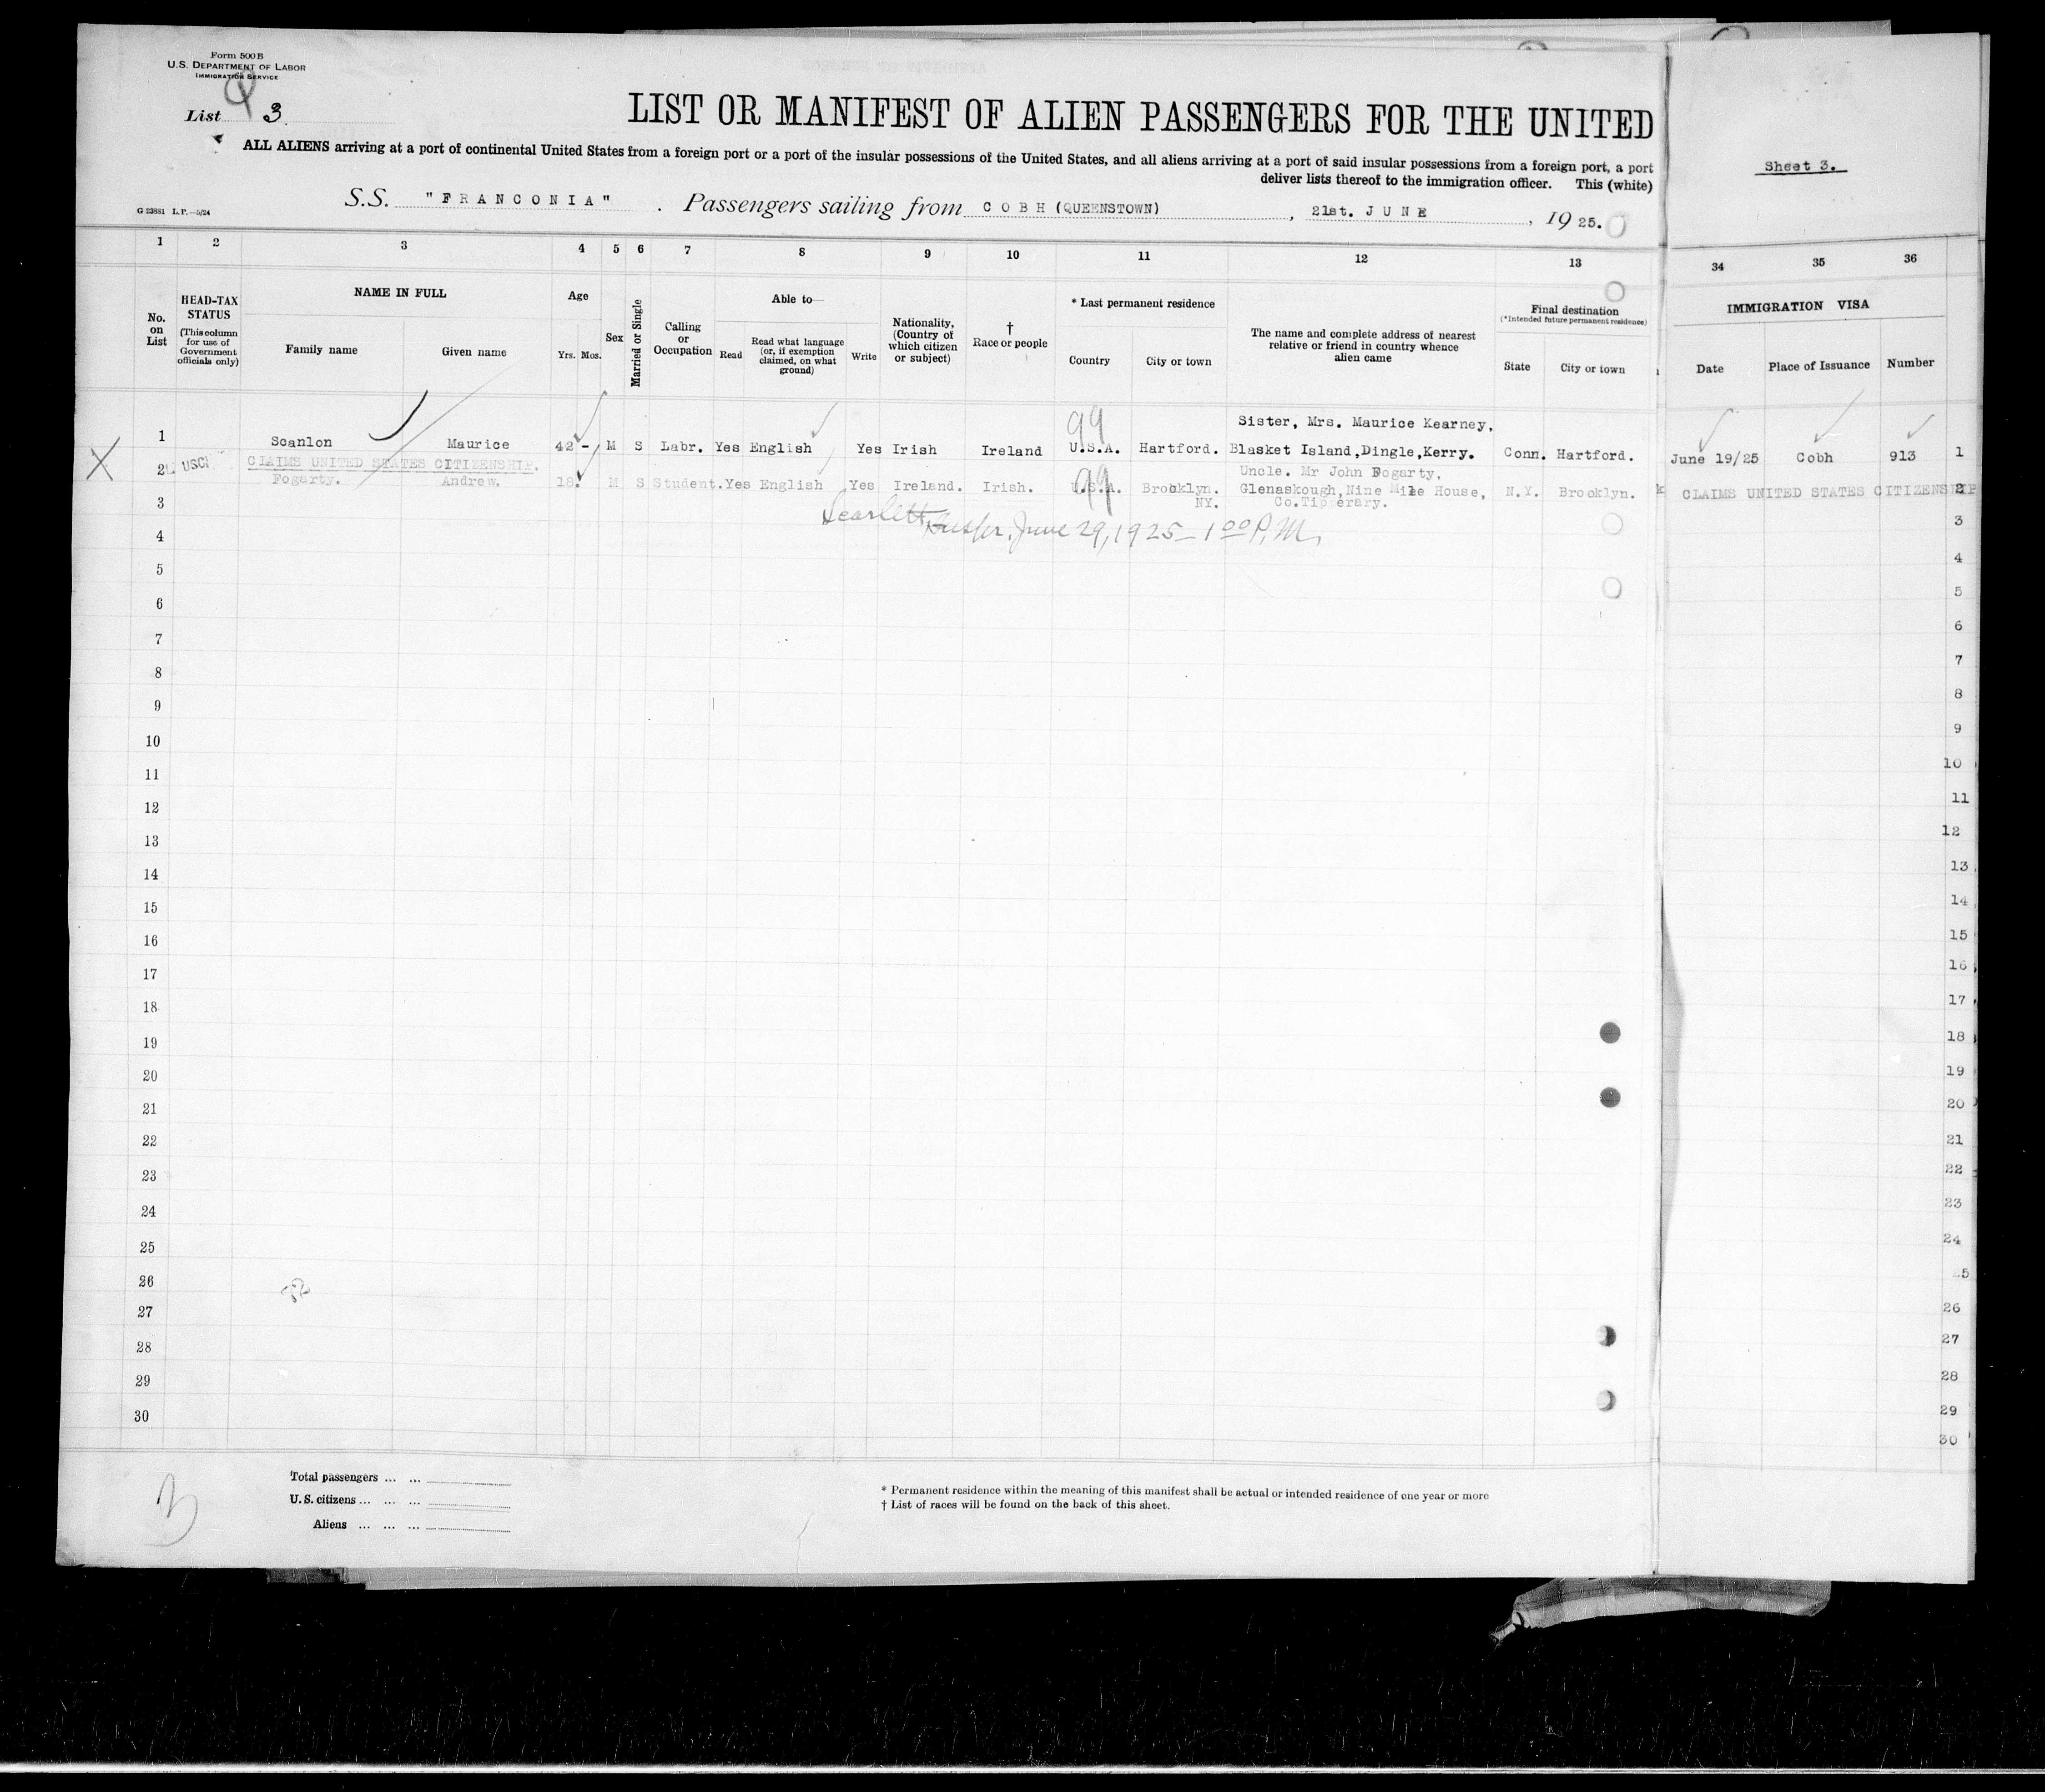 Form 500 B
U.S. DEPARTMENT OF LABOR
IMMIGRATION SERVICE
List 3.
LIST OR MANIFEST OF ALIEN PASSENGERS FOR THE UNITED
ALL ALIENS arriving at a port of continental United States from a foreign port or a port of the insular possessions of the United States, and all aliens arriving at a port of said insular possessions from a foreign port, a port
deliver lists thereof to the immigration officer. This (white)
Sheet 3.
G 23881 L.P.—5/24
S.S. "FRANCONIA". Passengers sailing from COBH (QUEENSTOWN), 21st. JUNE, 1925.
1 2 3 4 5 6 7 8 9 10 11 12 13 34 35 36
No. on List
HEAD-TAX STATUS
(This column for use of Government officials only)
NAME IN FULL
Family name Given name
Age
Yrs. Mos.
Sex
Married or Single
Calling or Occupation
Able to—
Read
Read what language (or, if exemption claimed, on what ground)
Write
Nationality, (Country of which citizen or subject)
† Race or people
* Last permanent residence
Country City or town
The name and complete address of nearest relative or friend in country whence alien came
Final destination
(*Intended future permanent residence)
State City or town
IMMIGRATION VISA
Date Place of Issuance Number
99
Sister, Mrs. Maurice Kearney,
1 Scanlon Maurice 42 - M S Labr. Yes English Yes Irish Ireland U.S.A. Hartford. Blasket Island, Dingle, Kerry. Conn. Hartford. June 19/25 Cobh 913 1
X 2 USC CLAIMS UNITED STATES CITIZENSHIP. 99 Uncle. Mr John Fogarty,
Fogarty. Andrew. 18. M S Student. Yes English Yes Ireland. Irish. U.S.A. Brooklyn. Glenaskough, Nine Mile House, N.Y. Brooklyn. CLAIMS UNITED STATES CITIZENSHIP 2
NY. Co. Tipperary.
3 3
Scarlett June 29, 1925 — 1 00 P.M.
4 4
5 5
6 6
7 7
8 8
9 9
10 10
11 11
12 12
13 13
14 14
15 15
16 16
17 17
18 18
19 19
20 20
21 21
22 22
23 23
24 24
25 25
26 26
27 27
28 28
29 29
30 30
3
Total passengers ... ...
U.S. citizens ... ... ...
Aliens ... ... ...
* Permanent residence within the meaning of this manifest shall be actual or intended residence of one year or more
† List of races will be found on the back of this sheet.